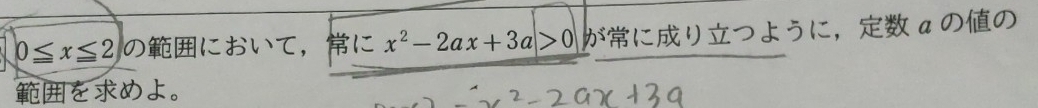 0≦x≦2の範囲において，常に x²−2ax+3a>0 が常に成り立つように，定数 a の値の
範囲を求めよ。
x²−2ax+3a